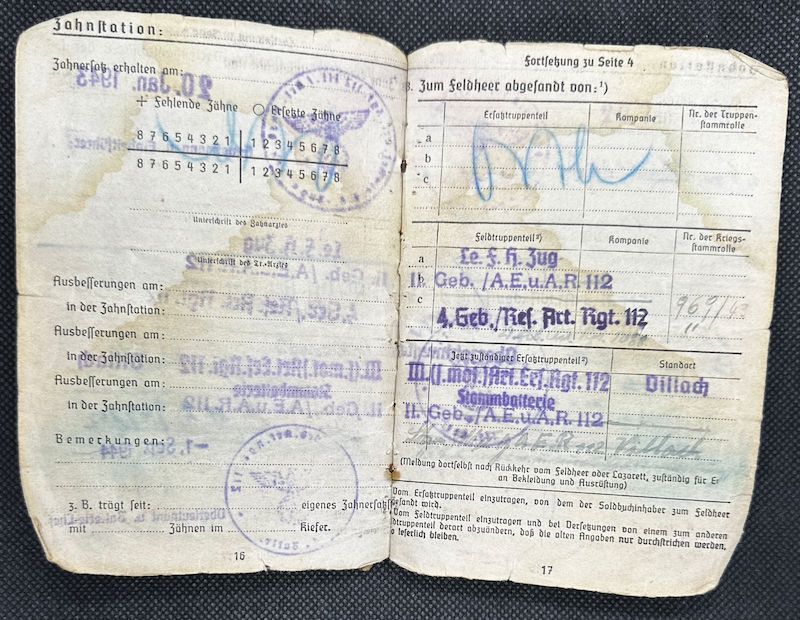 Zahnstation:
Zahnersatz erhalten am:
20. Jan. 1943
+ Fehlende Zähne ○ Ersetzte Zähne
8 7 6 5 4 3 2 1 | 1 2 3 4 5 6 7 8
8 7 6 5 4 3 2 1 | 1 2 3 4 5 6 7 8
Unterschrift des Zahnarztes
Unterschrift des Tr.-Arztes
Ausbesserungen am:
in der Zahnstation:
Ausbesserungen am:
in der Zahnstation:
Ausbesserungen am:
in der Zahnstation:
Bemerkungen:
-1. Sep. 1944
z. B. trägt seit: eigenes Zahnersatz
mit Zähnen im Kiefer.
16
Fortsetzung zu Seite 4
B. Zum Feldheer abgesandt von:¹)
Ersatztruppenteil Kompanie Nr. der Truppen-
stammrolle
a
b
c
Feldtruppenteil²) Kompanie Nr. der Kriegs-
stammrolle
a Le. F. H. Zug
b II. Geb./A.E.u.A.R. 112
c 969/43
4. Geb./Res. Art. Rgt. 112 "
Jetzt zuständiger Ersatztruppenteil²) Standort
M.(j.mot.)Art.Ers.Rgt. 112 Villach
Stammbatterie
II. Geb./A.E.u.A.R. 112
Villach
(Meldung dortselbst nach Rückkehr vom Feldheer oder Lazarett, zuständig für Er
an Bekleidung und Ausrüstung)
Vom Ersatztruppenteil einzutragen, von dem der Soldbuchinhaber zum Feldheer
gesandt wird.
Vom Feldtruppenteil einzutragen und bei Versetzungen von einem zum anderen
dtruppenteil derart abzuändern, daß die alten Angaben nur durchstrichen werden,
o leserlich bleiben.
17